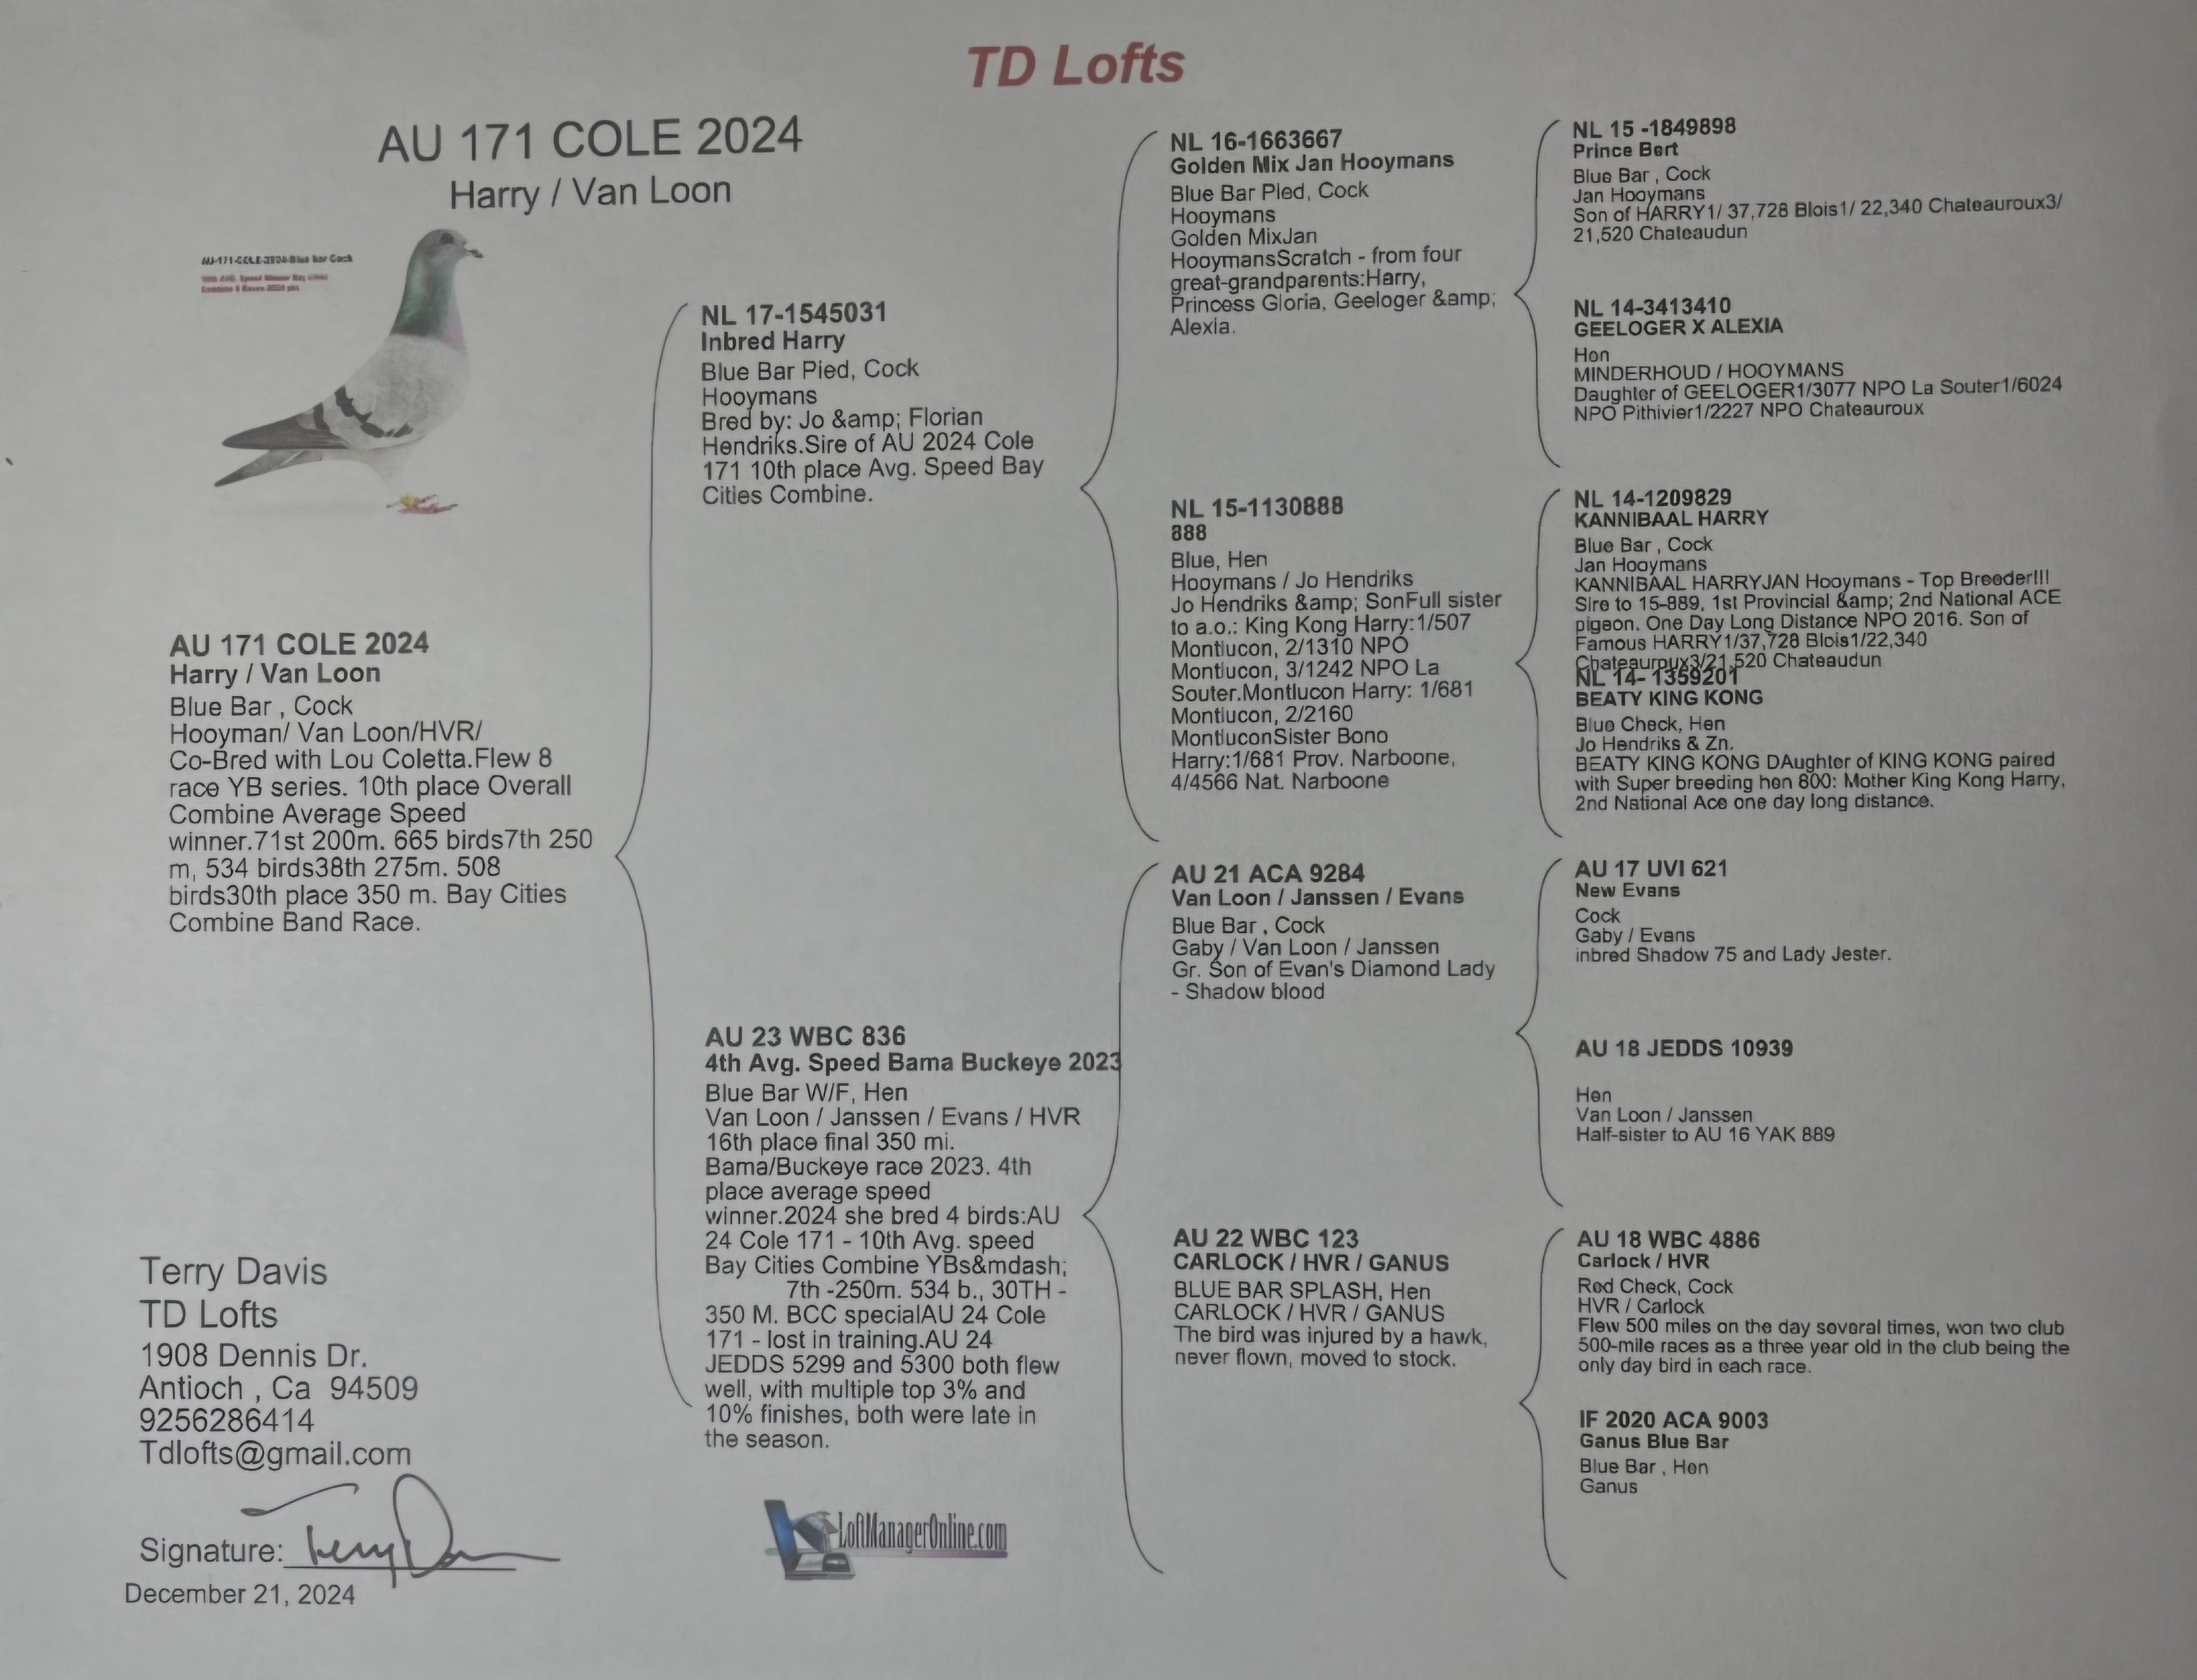 TD Lofts
AU 171 COLE 2024
Harry / Van Loon
AU-171-COLE-2024-Blue bar Cock
10th AVG. Speed Winner Bay cities
Combine 8 Races 2024 ybs
AU 171 COLE 2024
Harry / Van Loon
Blue Bar , Cock
Hooyman/ Van Loon/HVR/
Co-Bred with Lou Coletta.Flew 8
race YB series. 10th place Overall
Combine Average Speed
winner.71st 200m. 665 birds7th 250
m, 534 birds38th 275m. 508
birds30th place 350 m. Bay Cities
Combine Band Race.
Terry Davis
TD Lofts
1908 Dennis Dr.
Antioch , Ca 94509
9256286414
Tdlofts@gmail.com
Signature:
December 21, 2024
NL 17-1545031
Inbred Harry
Blue Bar Pied, Cock
Hooymans
Bred by: Jo &amp; Florian
Hendriks.Sire of AU 2024 Cole
171 10th place Avg. Speed Bay
Cities Combine.
AU 23 WBC 836
4th Avg. Speed Bama Buckeye 2023
Blue Bar W/F, Hen
Van Loon / Janssen / Evans / HVR
16th place final 350 mi.
Bama/Buckeye race 2023. 4th
place average speed
winner.2024 she bred 4 birds:AU
24 Cole 171 - 10th Avg. speed
Bay Cities Combine YBs&mdash;
7th -250m. 534 b., 30TH -
350 M. BCC specialAU 24 Cole
171 - lost in training.AU 24
JEDDS 5299 and 5300 both flew
well, with multiple top 3% and
10% finishes, both were late in
the season.
LoftManagerOnline.com
NL 16-1663667
Golden Mix Jan Hooymans
Blue Bar Pled, Cock
Hooymans
Golden MixJan
HooymansScratch - from four
great-grandparents:Harry,
Princess Gloria, Geeloger &amp;
Alexia.
NL 15-1130888
888
Blue, Hen
Hooymans / Jo Hendriks
Jo Hendriks &amp; SonFull sister
to a.o.: King Kong Harry:1/507
Montlucon, 2/1310 NPO
Montlucon, 3/1242 NPO La
Souter.Montlucon Harry: 1/681
Montlucon, 2/2160
MontluconSister Bono
Harry:1/681 Prov. Narboone,
4/4566 Nat. Narboone
AU 21 ACA 9284
Van Loon / Janssen / Evans
Blue Bar , Cock
Gaby / Van Loon / Janssen
Gr. Son of Evan's Diamond Lady
- Shadow blood
AU 22 WBC 123
CARLOCK / HVR / GANUS
BLUE BAR SPLASH, Hen
CARLOCK / HVR / GANUS
The bird was injured by a hawk,
never flown, moved to stock.
NL 15 -1849898
Prince Bert
Blue Bar , Cock
Jan Hooymans
Son of HARRY1/ 37,728 Blois1/ 22,340 Chateauroux3/
21,520 Chateaudun
NL 14-3413410
GEELOGER X ALEXIA
Hen
MINDERHOUD / HOOYMANS
Daughter of GEELOGER1/3077 NPO La Souter1/6024
NPO Pithivier1/2227 NPO Chateauroux
NL 14-1209829
KANNIBAAL HARRY
Blue Bar , Cock
Jan Hooymans
KANNIBAAL HARRYJAN Hooymans - Top Breeder!!!
Sire to 15-889, 1st Provincial &amp; 2nd National ACE
pigeon. One Day Long Distance NPO 2016. Son of
Famous HARRY1/37,728 Blois1/22,340
Chateauroux3/21,520 Chateaudun
NL 14- 1359201
BEATY KING KONG
Blue Check, Hen
Jo Hendriks & Zn.
BEATY KING KONG DAughter of KING KONG paired
with Super breeding hen 800: Mother King Kong Harry,
2nd National Ace one day long distance.
AU 17 UVI 621
New Evans
Cock
Gaby / Evans
inbred Shadow 75 and Lady Jester.
AU 18 JEDDS 10939
Hen
Van Loon / Janssen
Half-sister to AU 16 YAK 889
AU 18 WBC 4886
Carlock / HVR
Red Check, Cock
HVR / Carlock
Flew 500 miles on the day several times, won two club
500-mile races as a three year old in the club being the
only day bird in each race.
IF 2020 ACA 9003
Ganus Blue Bar
Blue Bar , Hen
Ganus